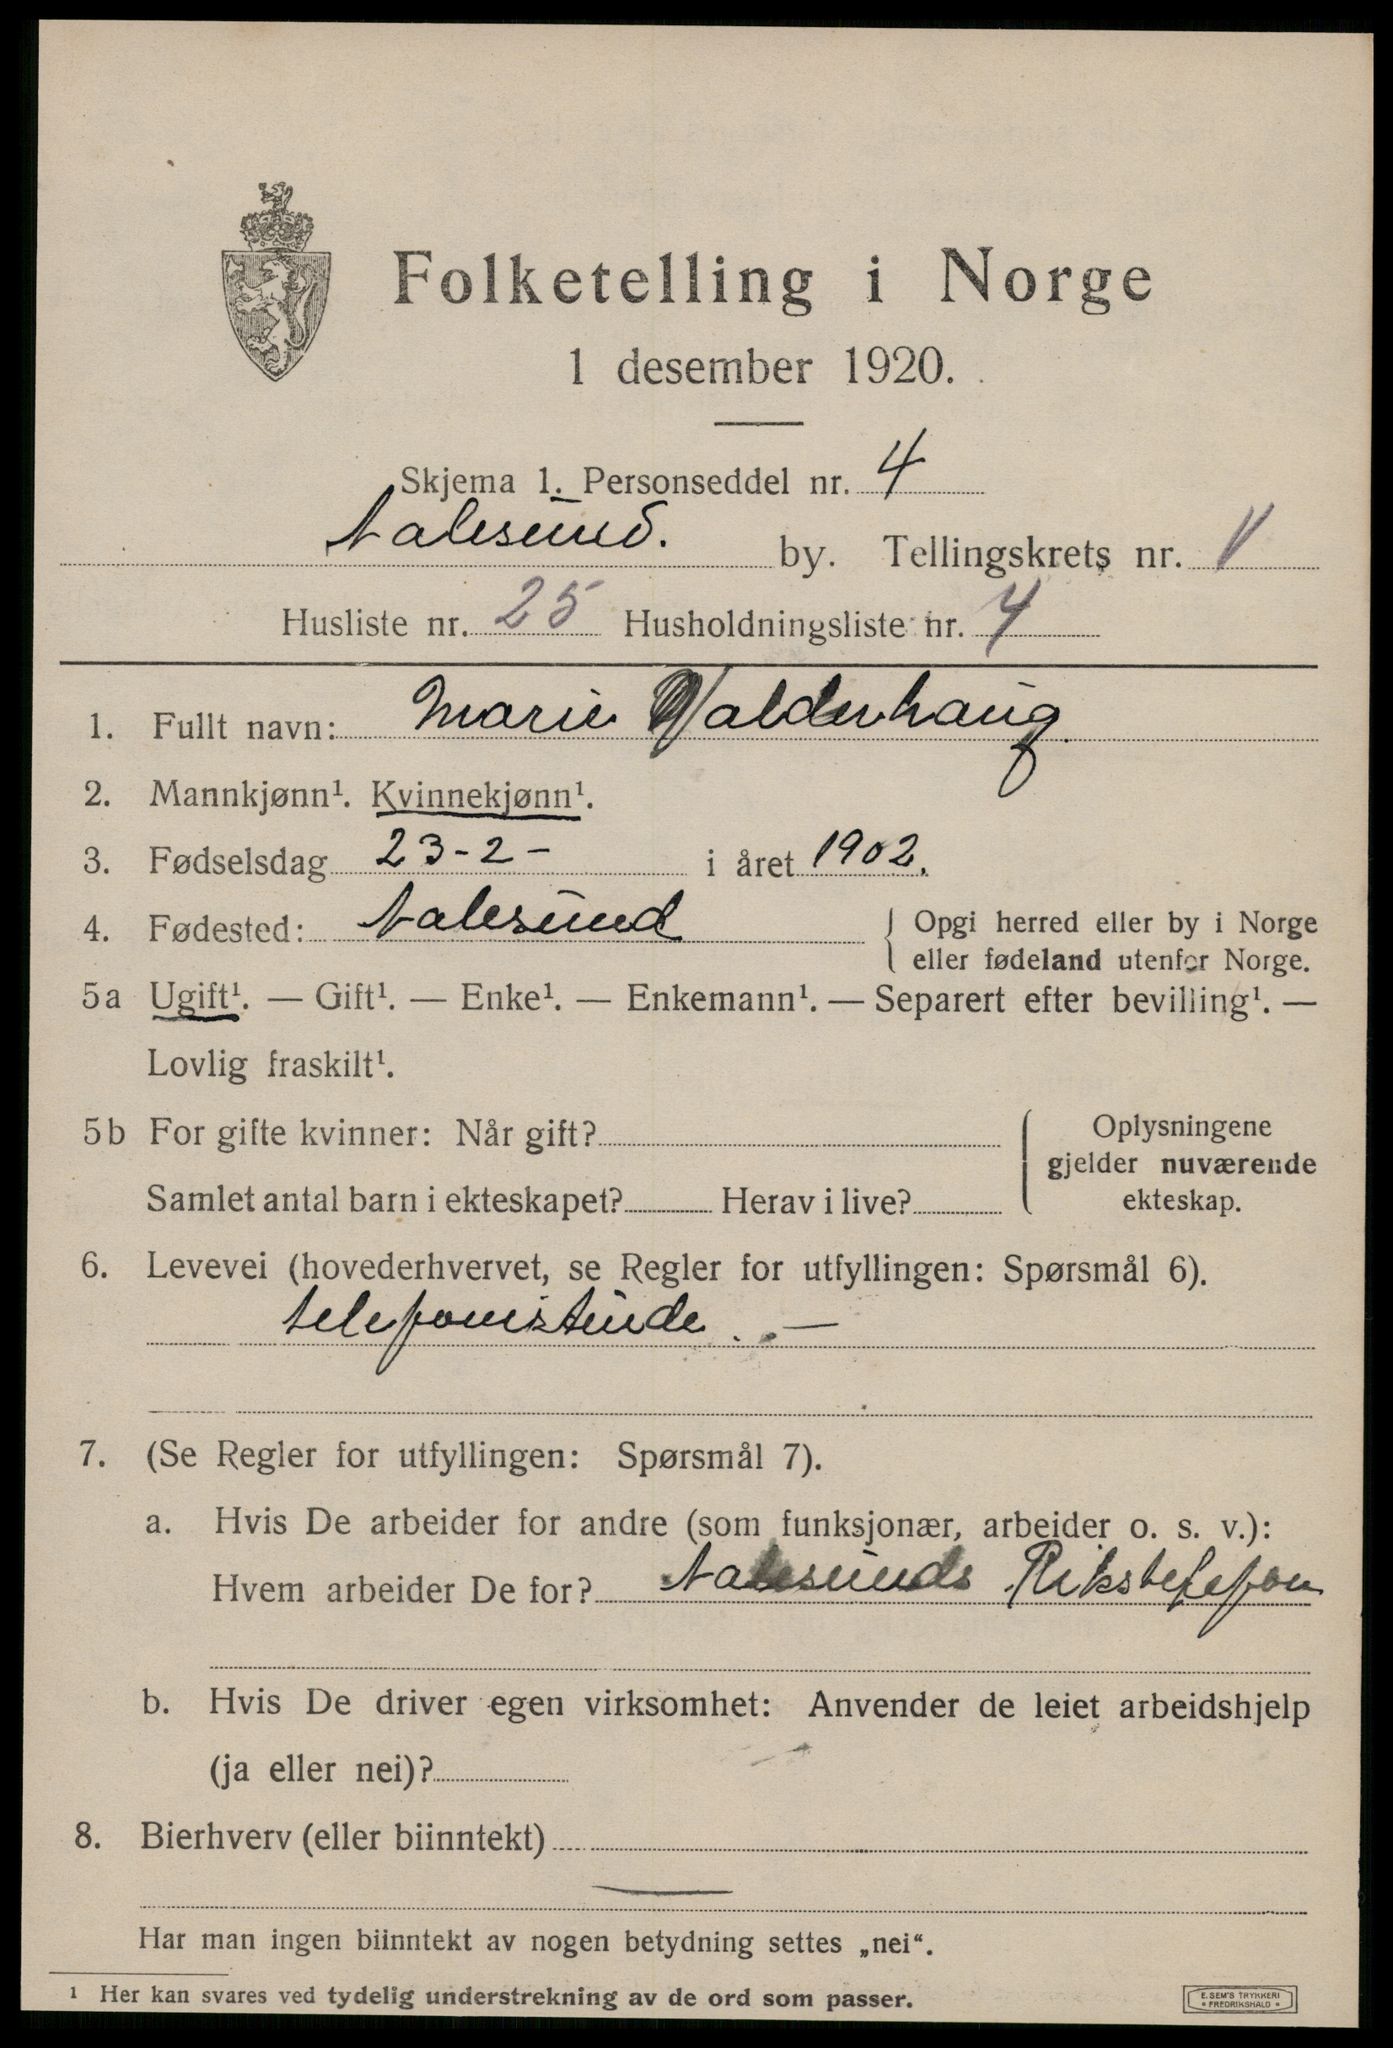 Folketelling i Norge
1 desember 1920.
Skjema 1. Personseddel nr. 4
Aalesund. by. Tellingskrets nr. V
Husliste nr. 25 Husholdningsliste nr. 4
1. Fullt navn: Marie Valderhaug
2. Mannkjønn¹. Kvinnekjønn¹.
3. Fødselsdag 23-2- i året 1902.
4. Fødested: Aalesund { Opgi herred eller by i Norge
eller fødeland utenfor Norge.
5a Ugift¹. — Gift¹. — Enke¹. — Enkemann¹. — Separert efter bevilling¹. —
Lovlig fraskilt¹.
5b For gifte kvinner: Når gift? { Oplysningene
gjelder nuværende
Samlet antal barn i ekteskapet? Herav i live? ekteskap.
6. Levevei (hovederhvervet, se Regler for utfyllingen: Spørsmål 6).
telefonistinde. —
7. (Se Regler for utfyllingen: Spørsmål 7).
a. Hvis De arbeider for andre (som funksjonær, arbeider o. s. v.):
Hvem arbeider De for? Aalesunds Rikstelefon
b. Hvis De driver egen virksomhet: Anvender de leiet arbeidshjelp
(ja eller nei)?
8. Bierhverv (eller biinntekt)
Har man ingen biinntekt av nogen betydning settes „nei“.
¹ Her kan svares ved tydelig understrekning av de ord som passer.
E. SEM'S TRYKKERI
FREDRIKSHALD